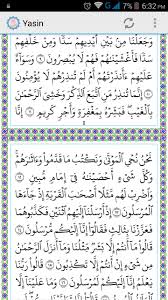 6:32
Yasin
وَجَعَلْنَا مِنْ بَيْنِ أَيْدِيهِمْ سَدًّا وَمِنْ خَلْفِهِمْ
سَدًّا فَأَغْشَيْنَاهُمْ فَهُمْ لَا يُبْصِرُونَ ۝ وَسَوَاءٌ
عَلَيْهِمْ أَأَنْذَرْتَهُمْ أَمْ لَمْ تُنْذِرْهُمْ لَا يُؤْمِنُونَ ۝
إِنَّمَا تُنْذِرُ مَنِ اتَّبَعَ الذِّكْرَ وَخَشِيَ الرَّحْمَٰنَ
بِالْغَيْبِ فَبَشِّرْهُ بِمَغْفِرَةٍ وَأَجْرٍ كَرِيمٍ ۝
إِنَّا نَحْنُ نُحْيِي الْمَوْتَىٰ وَنَكْتُبُ مَا قَدَّمُوا وَآثَارَهُمْ
وَكُلَّ شَيْءٍ أَحْصَيْنَاهُ فِي إِمَامٍ مُبِينٍ ۝
وَاضْرِبْ لَهُمْ مَثَلًا أَصْحَابَ الْقَرْيَةِ إِذْ جَاءَهَا
الْمُرْسَلُونَ ۝ إِذْ أَرْسَلْنَا إِلَيْهِمُ اثْنَيْنِ فَكَذَّبُوهُمَا
فَعَزَّزْنَا بِثَالِثٍ فَقَالُوا إِنَّا إِلَيْكُمْ مُرْسَلُونَ ۝
قَالُوا مَا أَنْتُمْ إِلَّا بَشَرٌ مِثْلُنَا وَمَا أَنْزَلَ الرَّحْمَٰنُ
مِنْ شَيْءٍ إِنْ أَنْتُمْ إِلَّا تَكْذِبُونَ ۝ قَالُوا رَبُّنَا
يَعْلَمُ إِنَّا إِلَيْكُمْ لَمُرْسَلُونَ ۝ وَمَا عَلَيْنَا